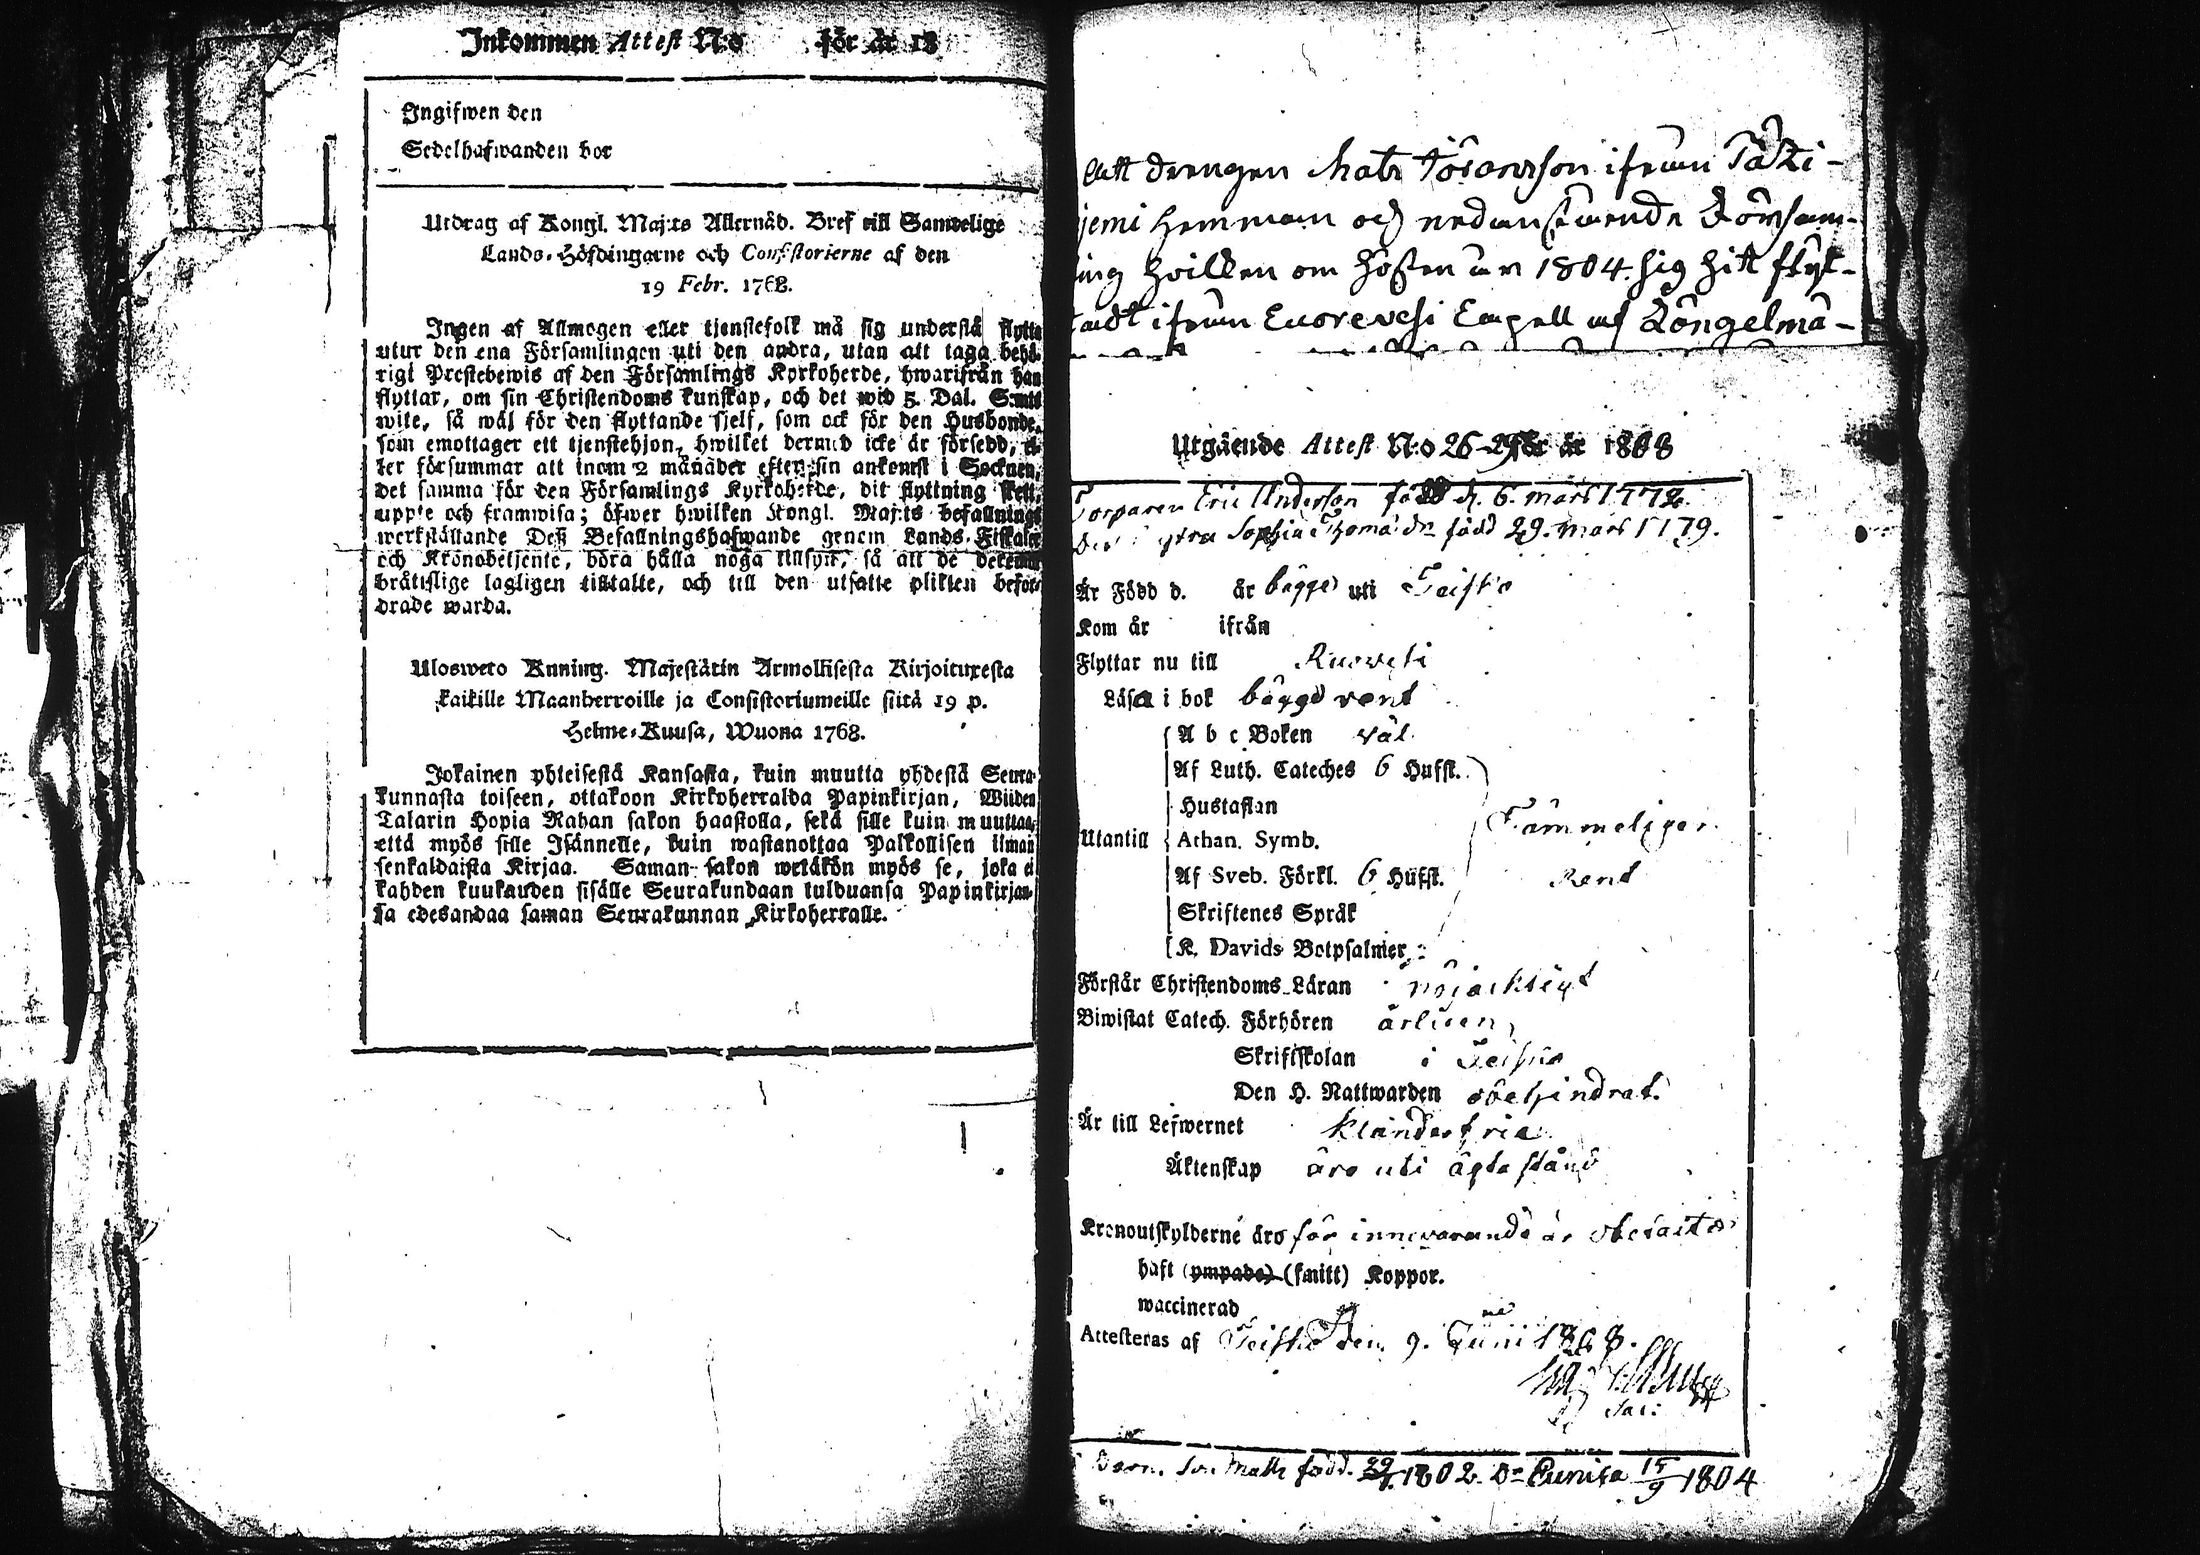 Inkommen Attest N:o för år 18
Ingifwen den
Sedelhafwanden bor
Utdrag af Kongl. Maj:ts Allernåd. Bref till Samtelige
Lands-Höfdingarne och Consistorierne af den
19 Febr. 1768.
Ingen af Allmogen eller tjenstefolk må sig understå flytta
utur den ena Församlingen uti den andra, utan att taga behö-
rigt Prestebewis af den Församlings Kyrkoherde, hwarifrån han
flyttar, om sin Christendoms kunskap, och det wid 5. Dal. S:mts
wite, så wäl för den flyttande sjelf, som ock för den Husbonde,
som emottager ett tjenstehjon, hwilket dermed icke är försedd, el-
ler försummar att inom 2 månader efter sin ankomst i Socknen,
det samma för den Församlings Kyrkoherde, dit flyttning skett,
uppte och framwisa; öfwer hwilken Kongl. Maj:ts befallnings
werkställande Deß Befallningshafwande genom Lands-Fiskaler
och Kronobetjente, böra hålla noga tillsyn, så att de deremot
brättslige lagligen tilltalte, och till den utsatte plikten befor-
drade warda.
Ulosweto Kuning. Majestätin Armollisesta Kirjoituxesta
kaikille Maanherroille ja Consistoriumeille siitä 19 p.
Helme-Kuusa, Wuona 1768.
Jokainen yhteisestä Kansasta, kuin muutta yhdestä Seura-
kunnasta toiseen, ottakoon Kirkoherralda Papinkirjan, Wiiden
Talarin Hopia Rahan sakon haastolla, sekä sille kuin muuttaa,
että myös sille Isännelle, kuin wastanottaa Palkollisen ilman
senkaldaista Kirjaa. Saman sakon wetäkön myös se, joka ei
kahden kuukauden sisälle Seurakundaan tulduansa Papinkirjan-
sa edesandaa saman Seurakunnan Kirkoherralle.
att drengen Mats Jöransson ifrån
jemi Hemman och nedanstående Församl-
ing hvilken om hösten år 1804 sig hit flyt-
tadt ifrån Euorevesi Capell af Kôngelmä-
Utgående Attest N:o 26-29 för år 1808
Torparen Eric Andersson född d. 6. mars 1772.
Sophia Thomæ dr född 29. mars 1779.
Är Född d. år bägge uti Teisko
Kom år ifrån
Flyttar nu till Ruovesi
Läsa i bok bägge rent
A b c Boken väl
Af Luth. Cateches 6 Hufst.
Hustaflan
Utantill Athan. Symb. Fämmeligen
Af Sveb. Förkl. 6 Hufst. Rent
Skriftenes Språk
K. Davids Botpsalmer
Förstår Christendoms-Läran nöjacktigt
Biwistat Catech. Förhören årligen
Skriftskolan i Teisko
Den H. Nattwarden obehindrat.
Är till Lefwernet klanderfria
Äktenskap äro uti ägta stånd
Kronoutskylderne äro för innevarande år obetalte
haft (ympade) (smitt) Koppor.
waccinerad
Attesteras af Teisko den 9. Junii 1808.
Barn. Son Matts född. 29 1802. Dr Eunica 15/9 1804